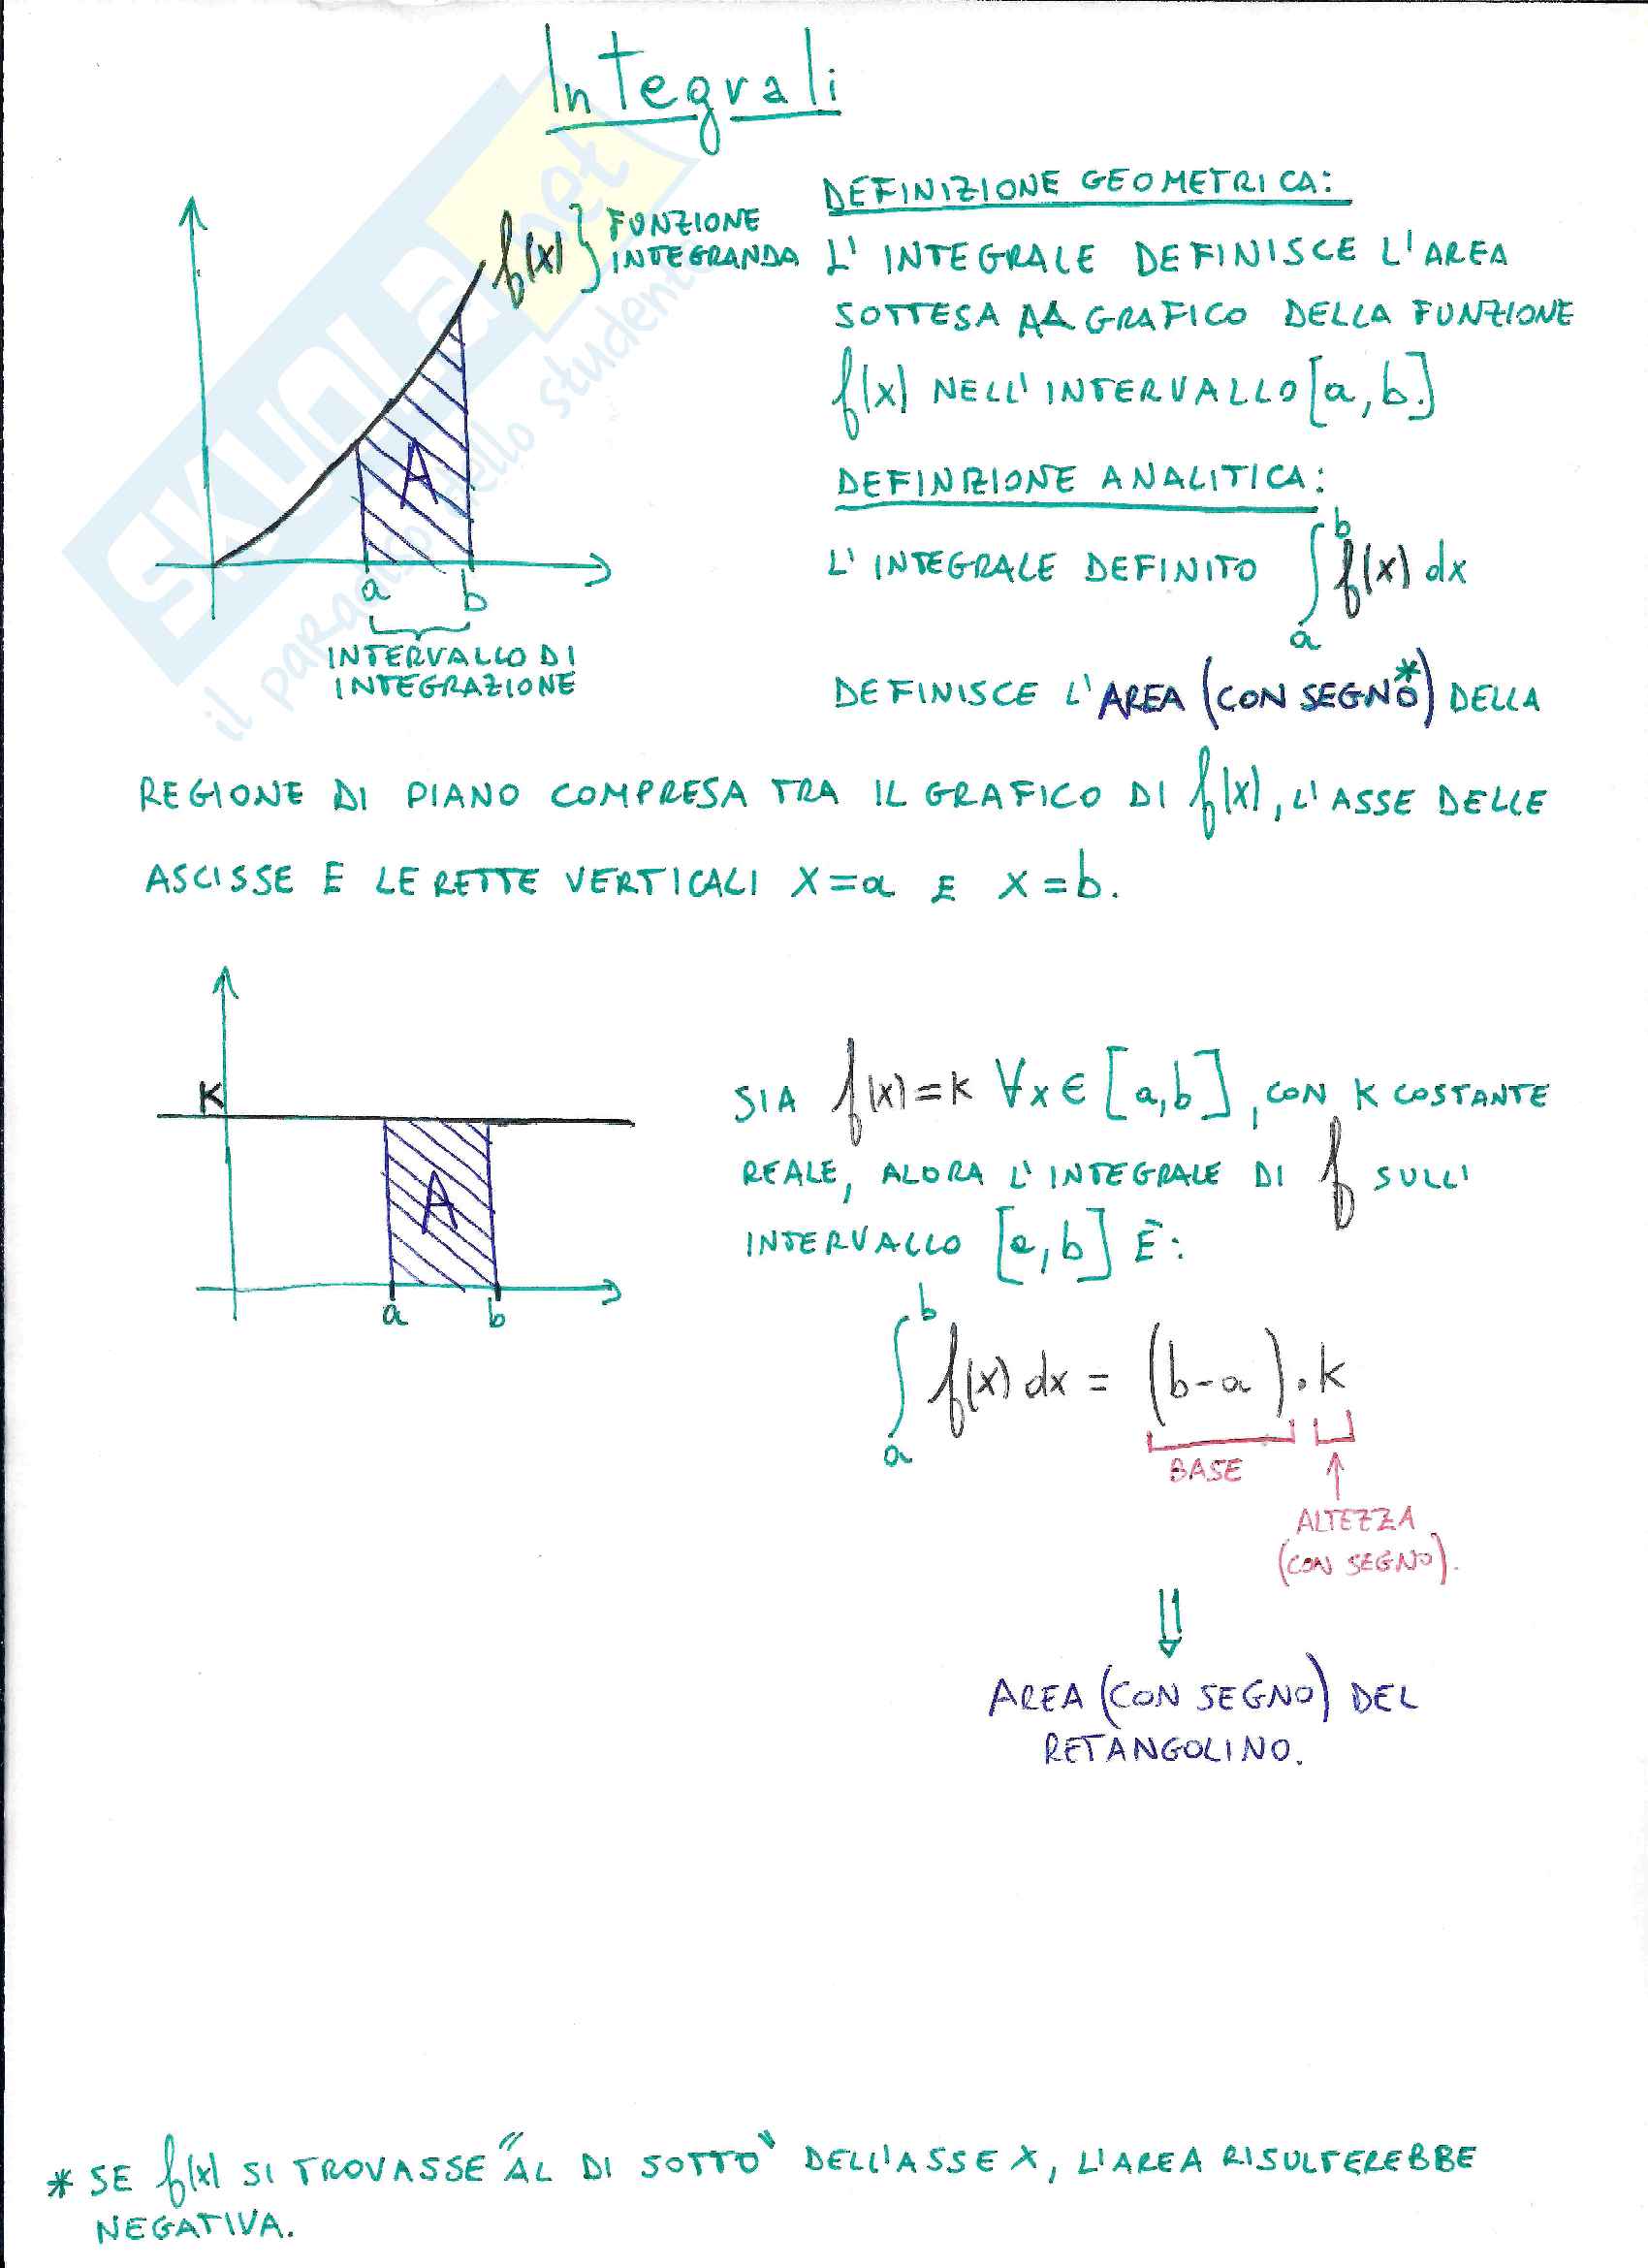 Integrali
DEFINIZIONE GEOMETRICA:
f(x) } FUNZIONE
INTEGRANDA
L' INTEGRALE DEFINISCE L'AREA
SOTTESA AL GRAFICO DELLA FUNZIONE
f(x) NELL'INTERVALLO [a,b.]
A
DEFINIZIONE ANALITICA:
L' INTEGRALE DEFINITO ∫ₐᵇ f(x) dx
a b
INTERVALLO DI
INTEGRAZIONE
DEFINISCE L'AREA (CON SEGNO*) DELLA
REGIONE DI PIANO COMPRESA TRA IL GRAFICO DI f(x), L'ASSE DELLE
ASCISSE E LE RETTE VERTICALI x=a E x=b.
K
SIA f(x)=k ∀x∈[a,b], CON K COSTANTE
REALE, ALORA L'INTEGRALE DI f SULL'
INTERVALLO [a,b] È:
A
a b
∫ₐᵇ f(x) dx = (b-a)·k
BASE
ALTEZZA
(CON SEGNO).
⇓
AREA (CON SEGNO) DEL
RETANGOLINO.
* SE f(x) SI TROVASSE "AL DI SOTTO" DELL'ASSE X, L'AREA RISULTEREBBE
NEGATIVA.
SKUOLa.net
il paradiso dello studente